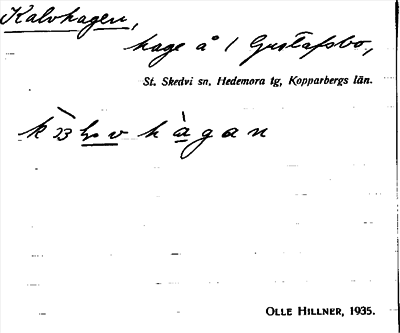 Kalvhagen,
hage å 1 Gustafsbo,
St. Skedvi sn, Hedemora tg, Kopparbergs län.
hàgan
OLLE HILLNER, 1935.